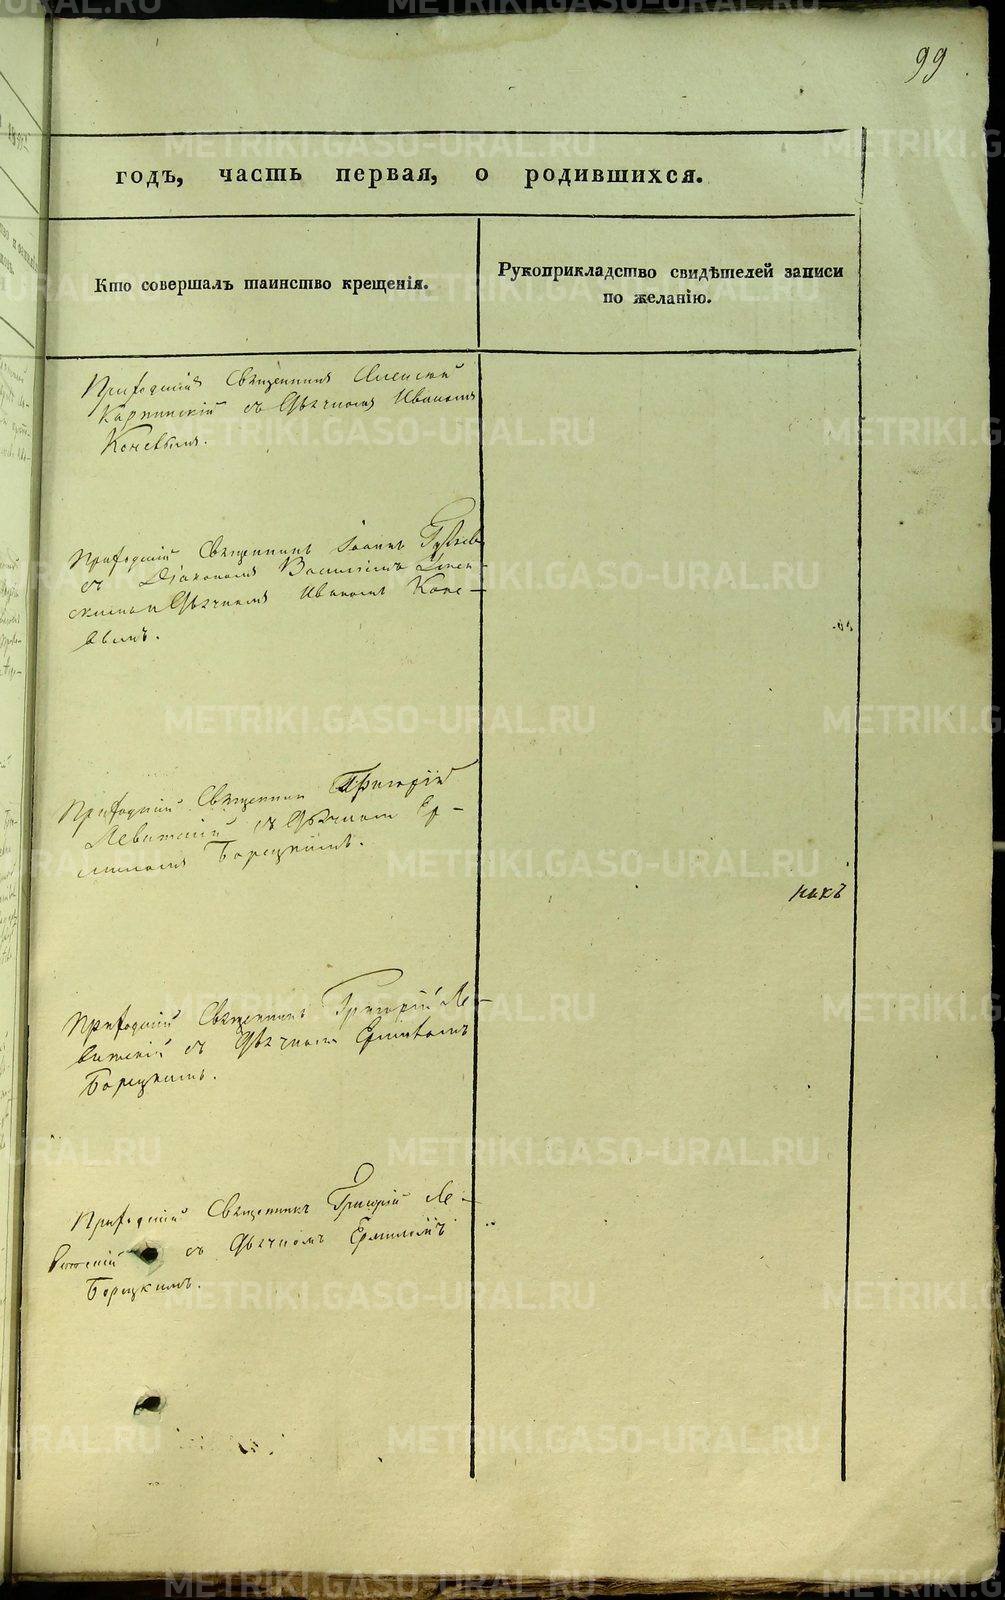 99
годъ, часть первая, о родившихся.
Кто совершалъ таинство крещенія.
Рукоприкладство свидѣтелей записи
по желанію.
Приходскій Священникъ Алексей
Карпинскій съ Дьячкомъ Иваномъ
Коневымъ.
Приходскій Священникъ Іоаннъ
съ Діакономъ Василіемъ
и Дьячкомъ Иваномъ Коне-
вымъ.
Приходскій Священник Григорій
Левитскій съ Дьячкомъ Ер-
миломъ Борецкимъ.
накъ
Приходскій Священникъ Григорій Ле-
витскій съ Дьячкомъ Ермиломъ
Борецкимъ.
Приходскій Священникъ Григорій Ле-
витскій съ Дьячкомъ
Борецкимъ.
METRIKI.GASO-URAL.RU